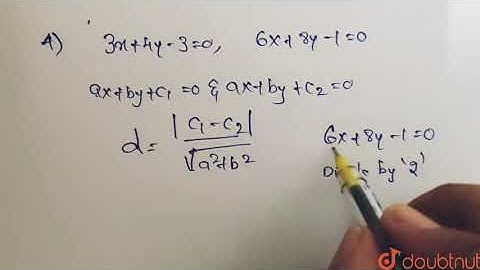 A) 3x+4y-3=0, 6x+8y-1=0
ax+by+c₁=0 & ax+by+c₂=0
d = |c₁-c₂| / √a²+b²
6x+8y-1=0
by '2'
doubtnut